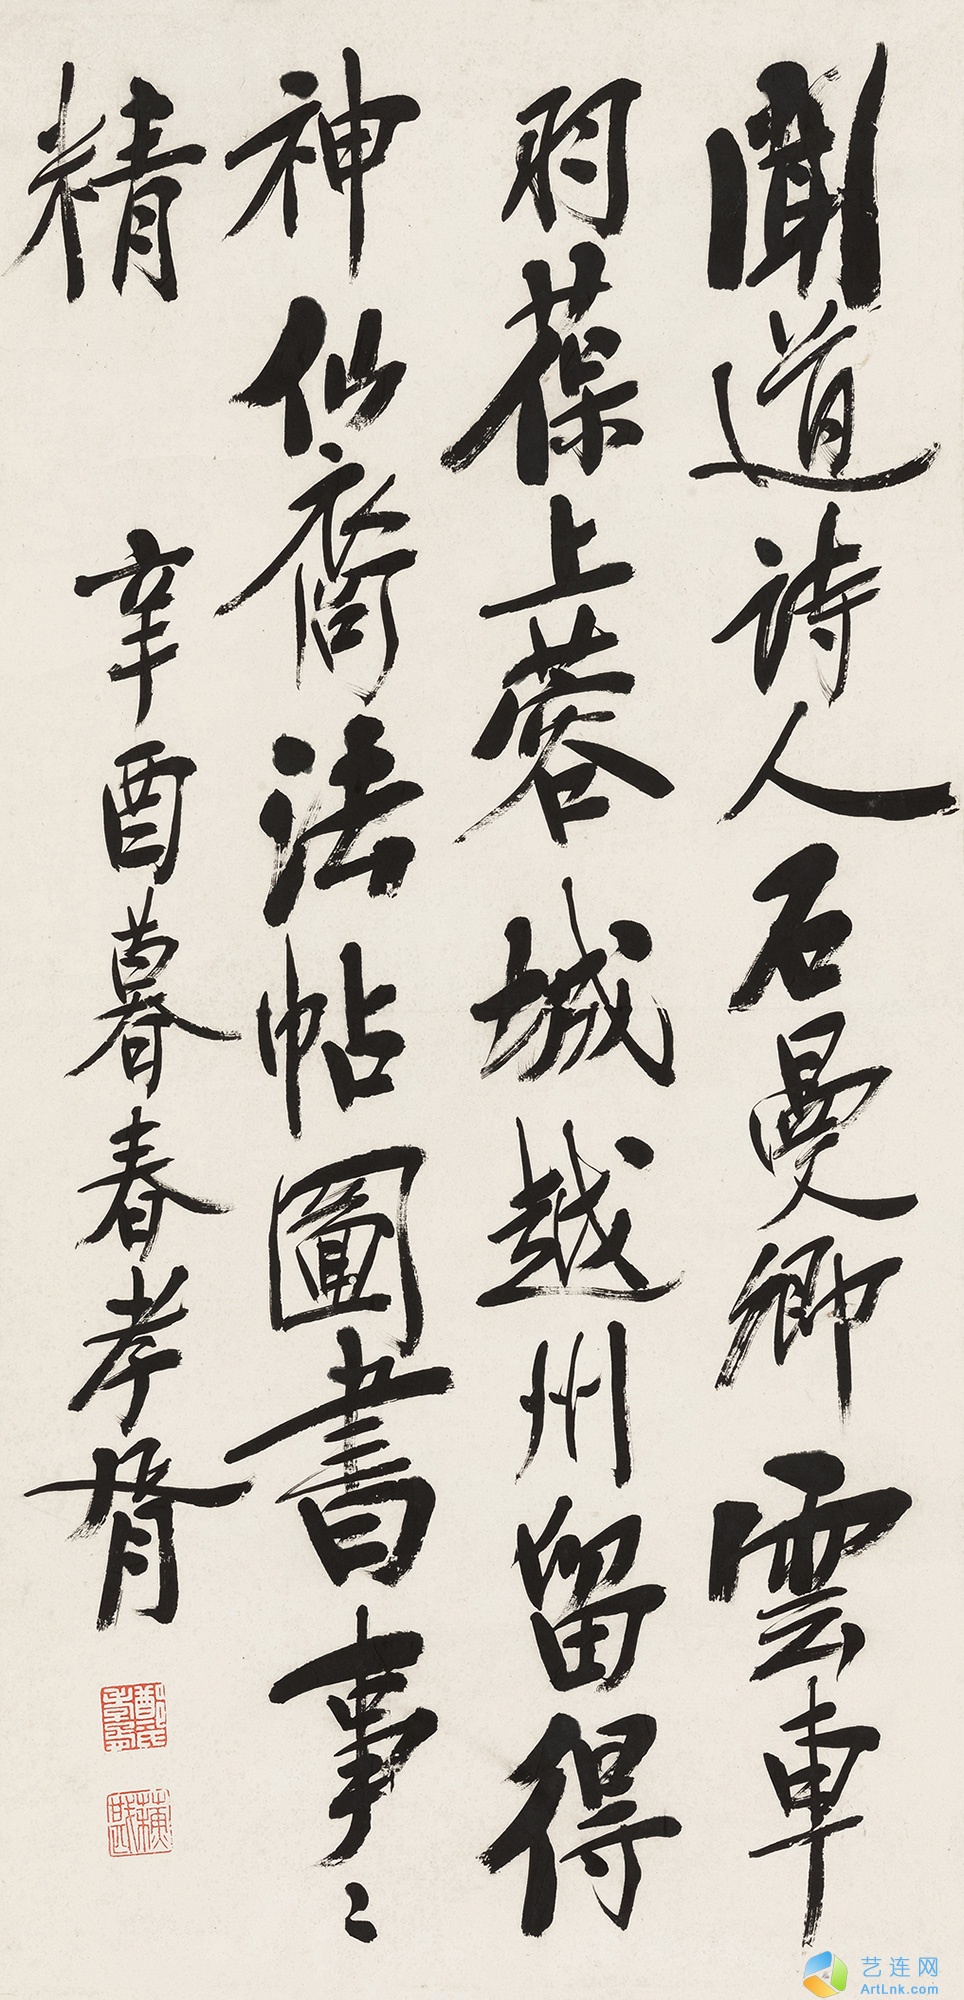 聞道詩人石曼卿雲車
羽葆上蓉城越州留得
神仙裔法帖圖書事〻
精
辛酉暮春孝胥
艺连网
ArtLnk.com